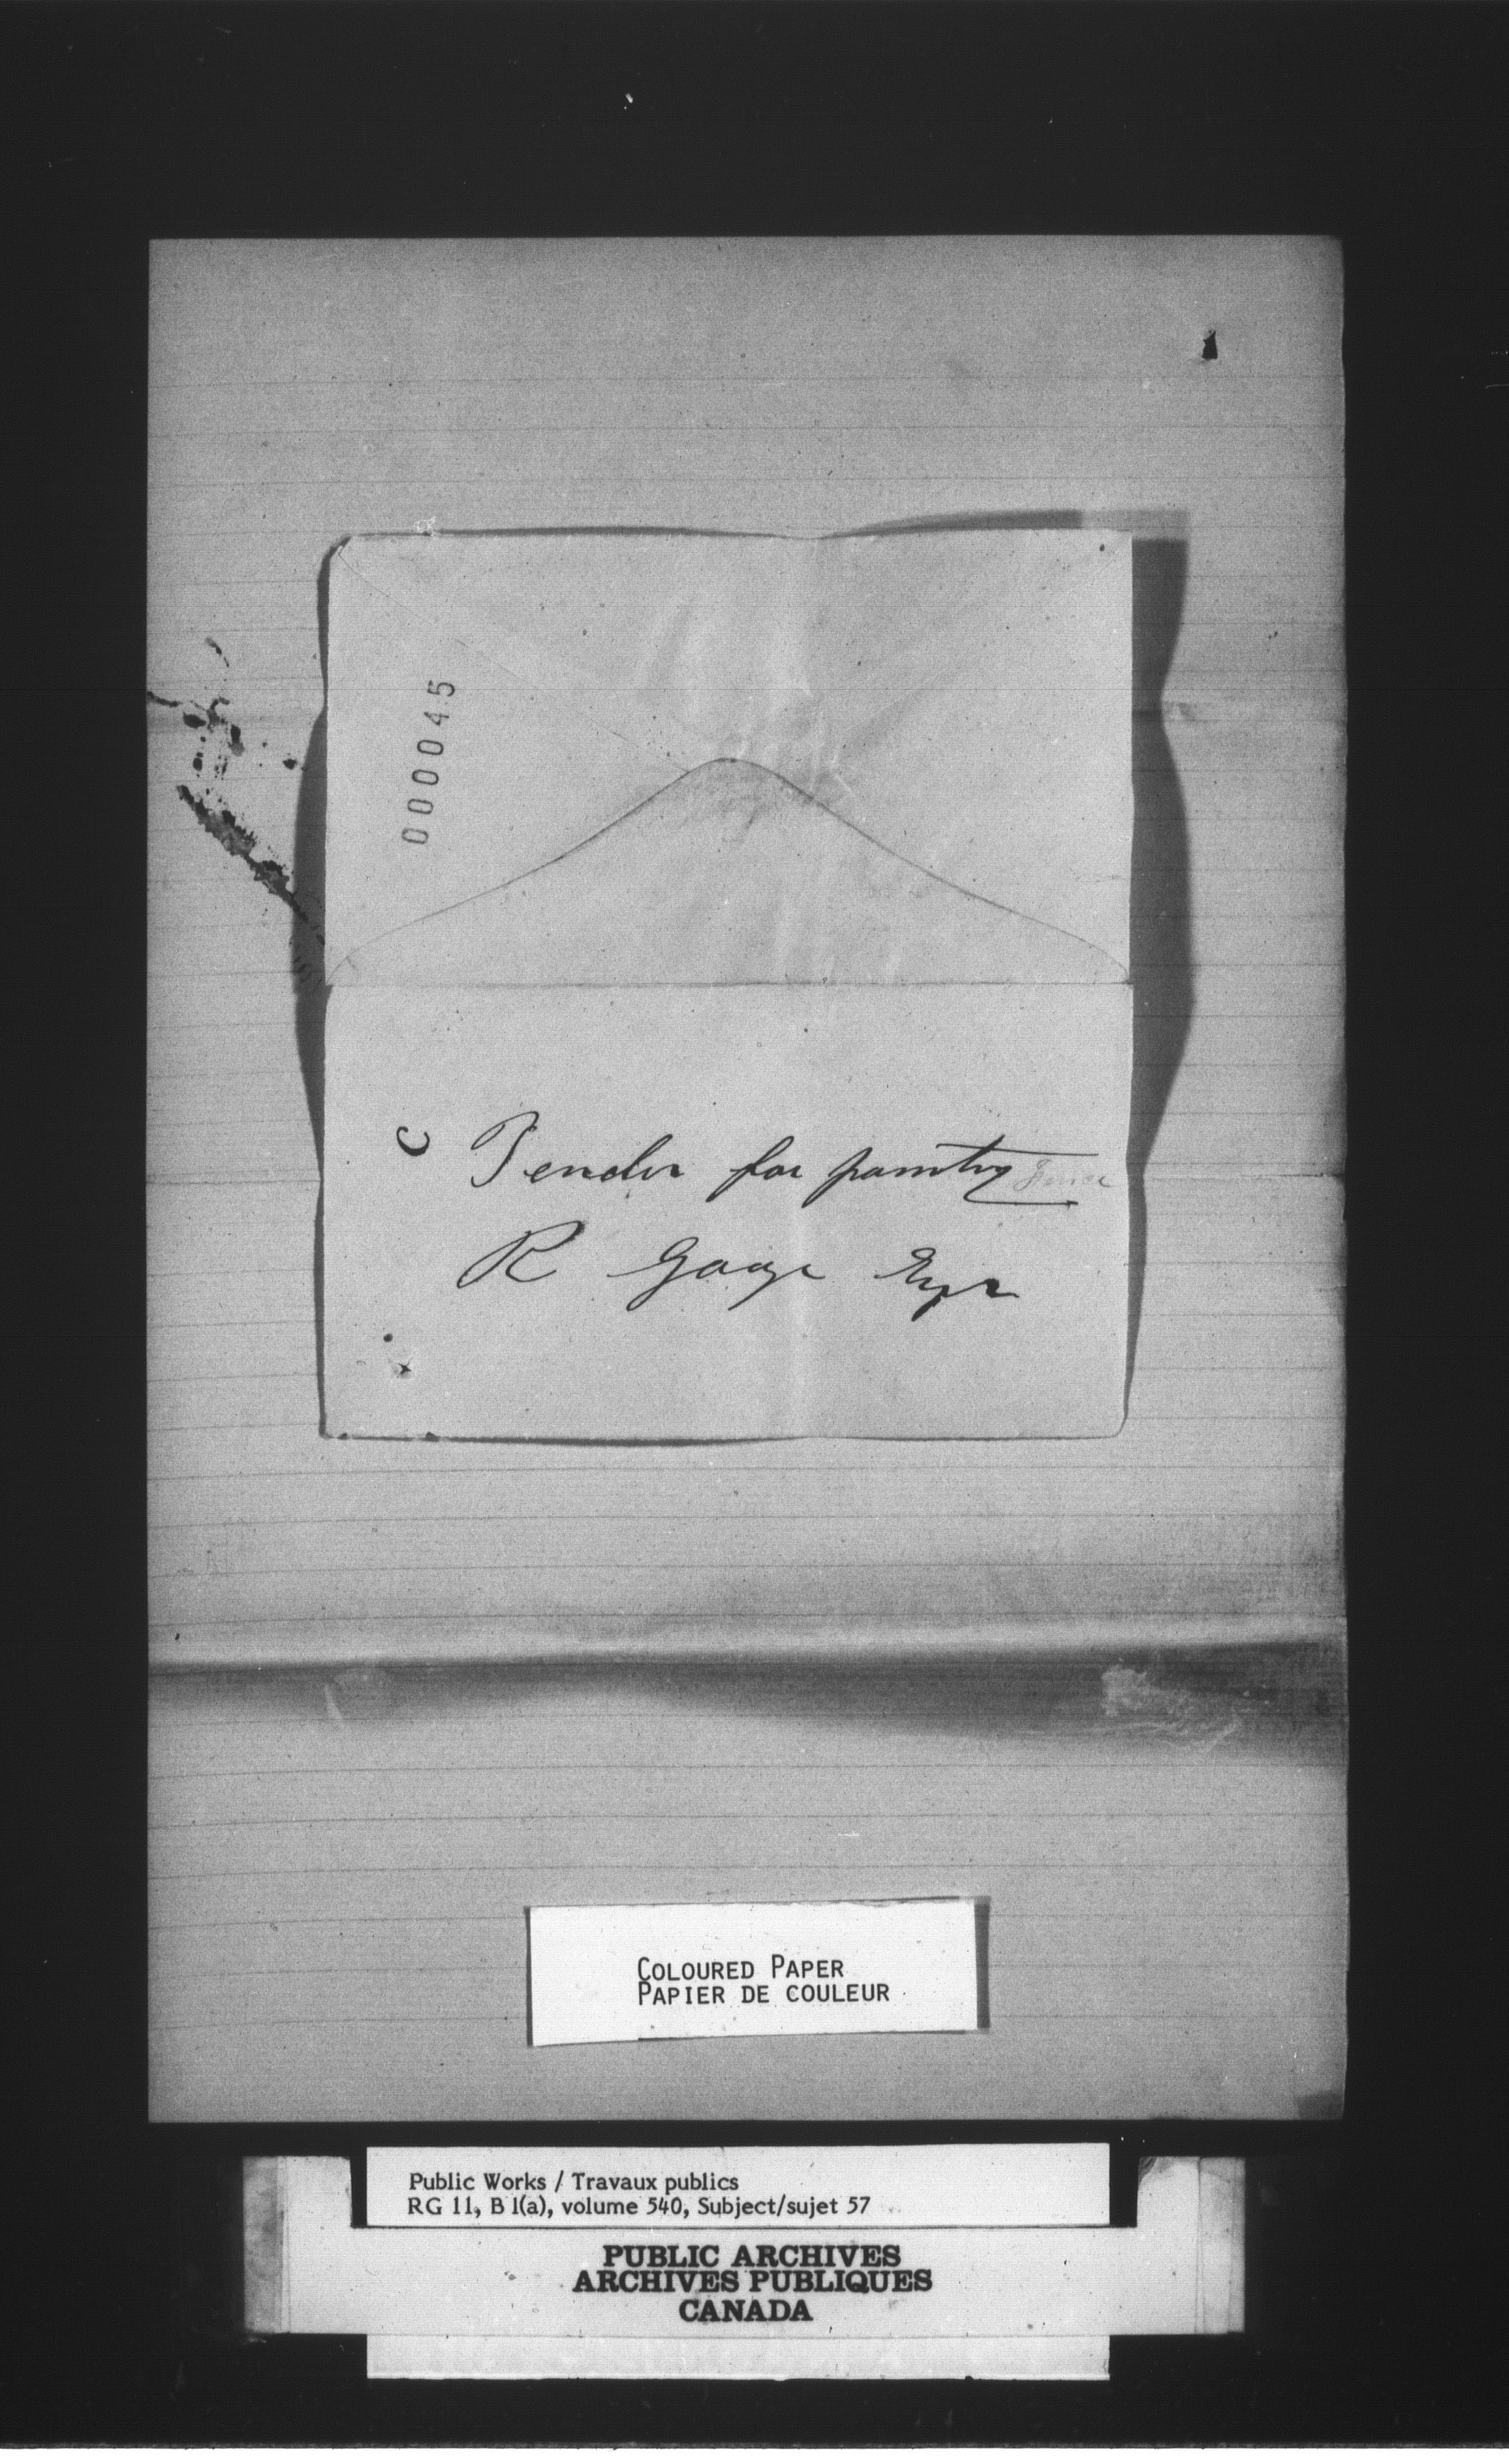 000045
C Tender for painting Fence
R Gage Esqr
COLOURED PAPER
PAPIER DE COULEUR
Public Works / Travaux publics
RG 11, B 1(a), volume 540, Subject/sujet 57
PUBLIC ARCHIVES
ARCHIVES PUBLIQUES
CANADA